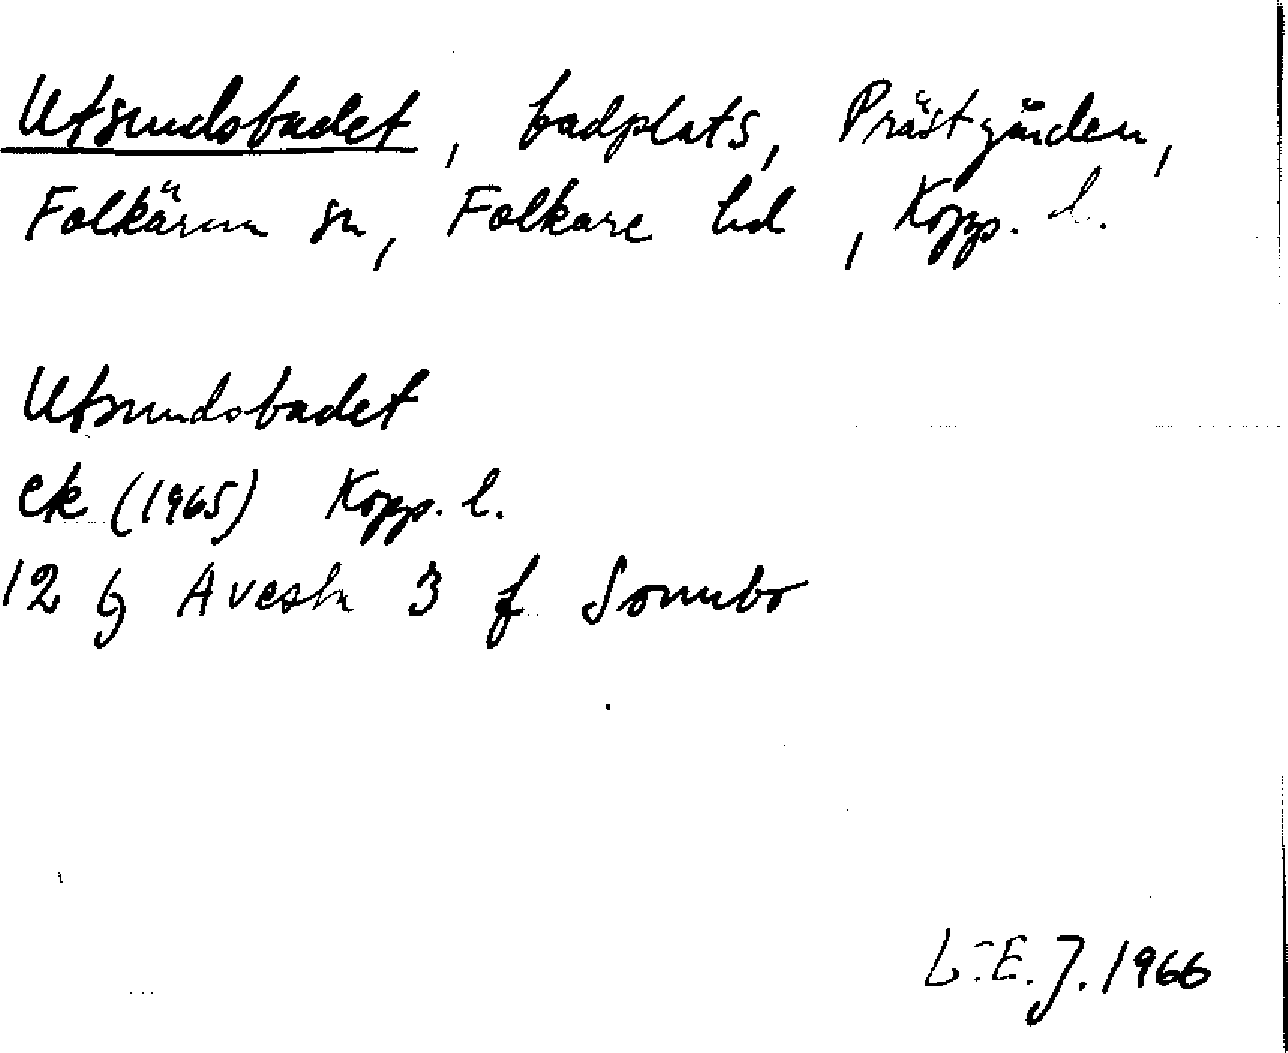 Utsundsbadet, badplats, Prästgården,
Folkärna sn, Folkare hd, Kopp. l.
Utsundsbadet
ek (1965) Kopp. l.
12 G Avesta 3 f Sonnbo
L-E.J. 1966